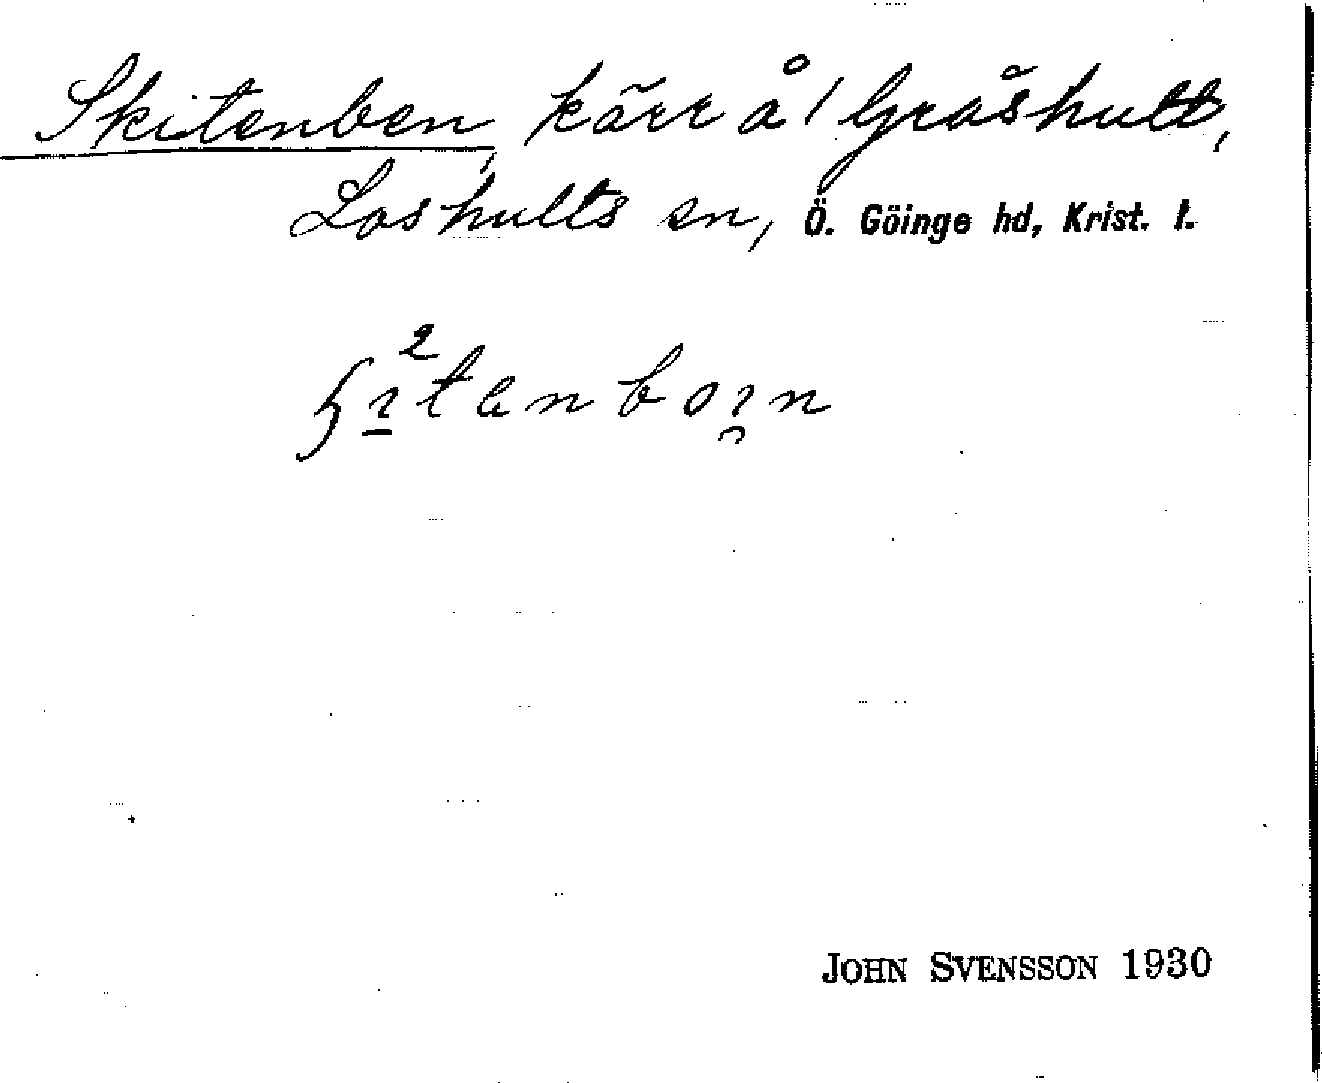 Skitenben, kärr å 1 Gråshult,
Loshults sn, Ö. Göinge hd, Krist. l.
JOHN SVENSSON 1930